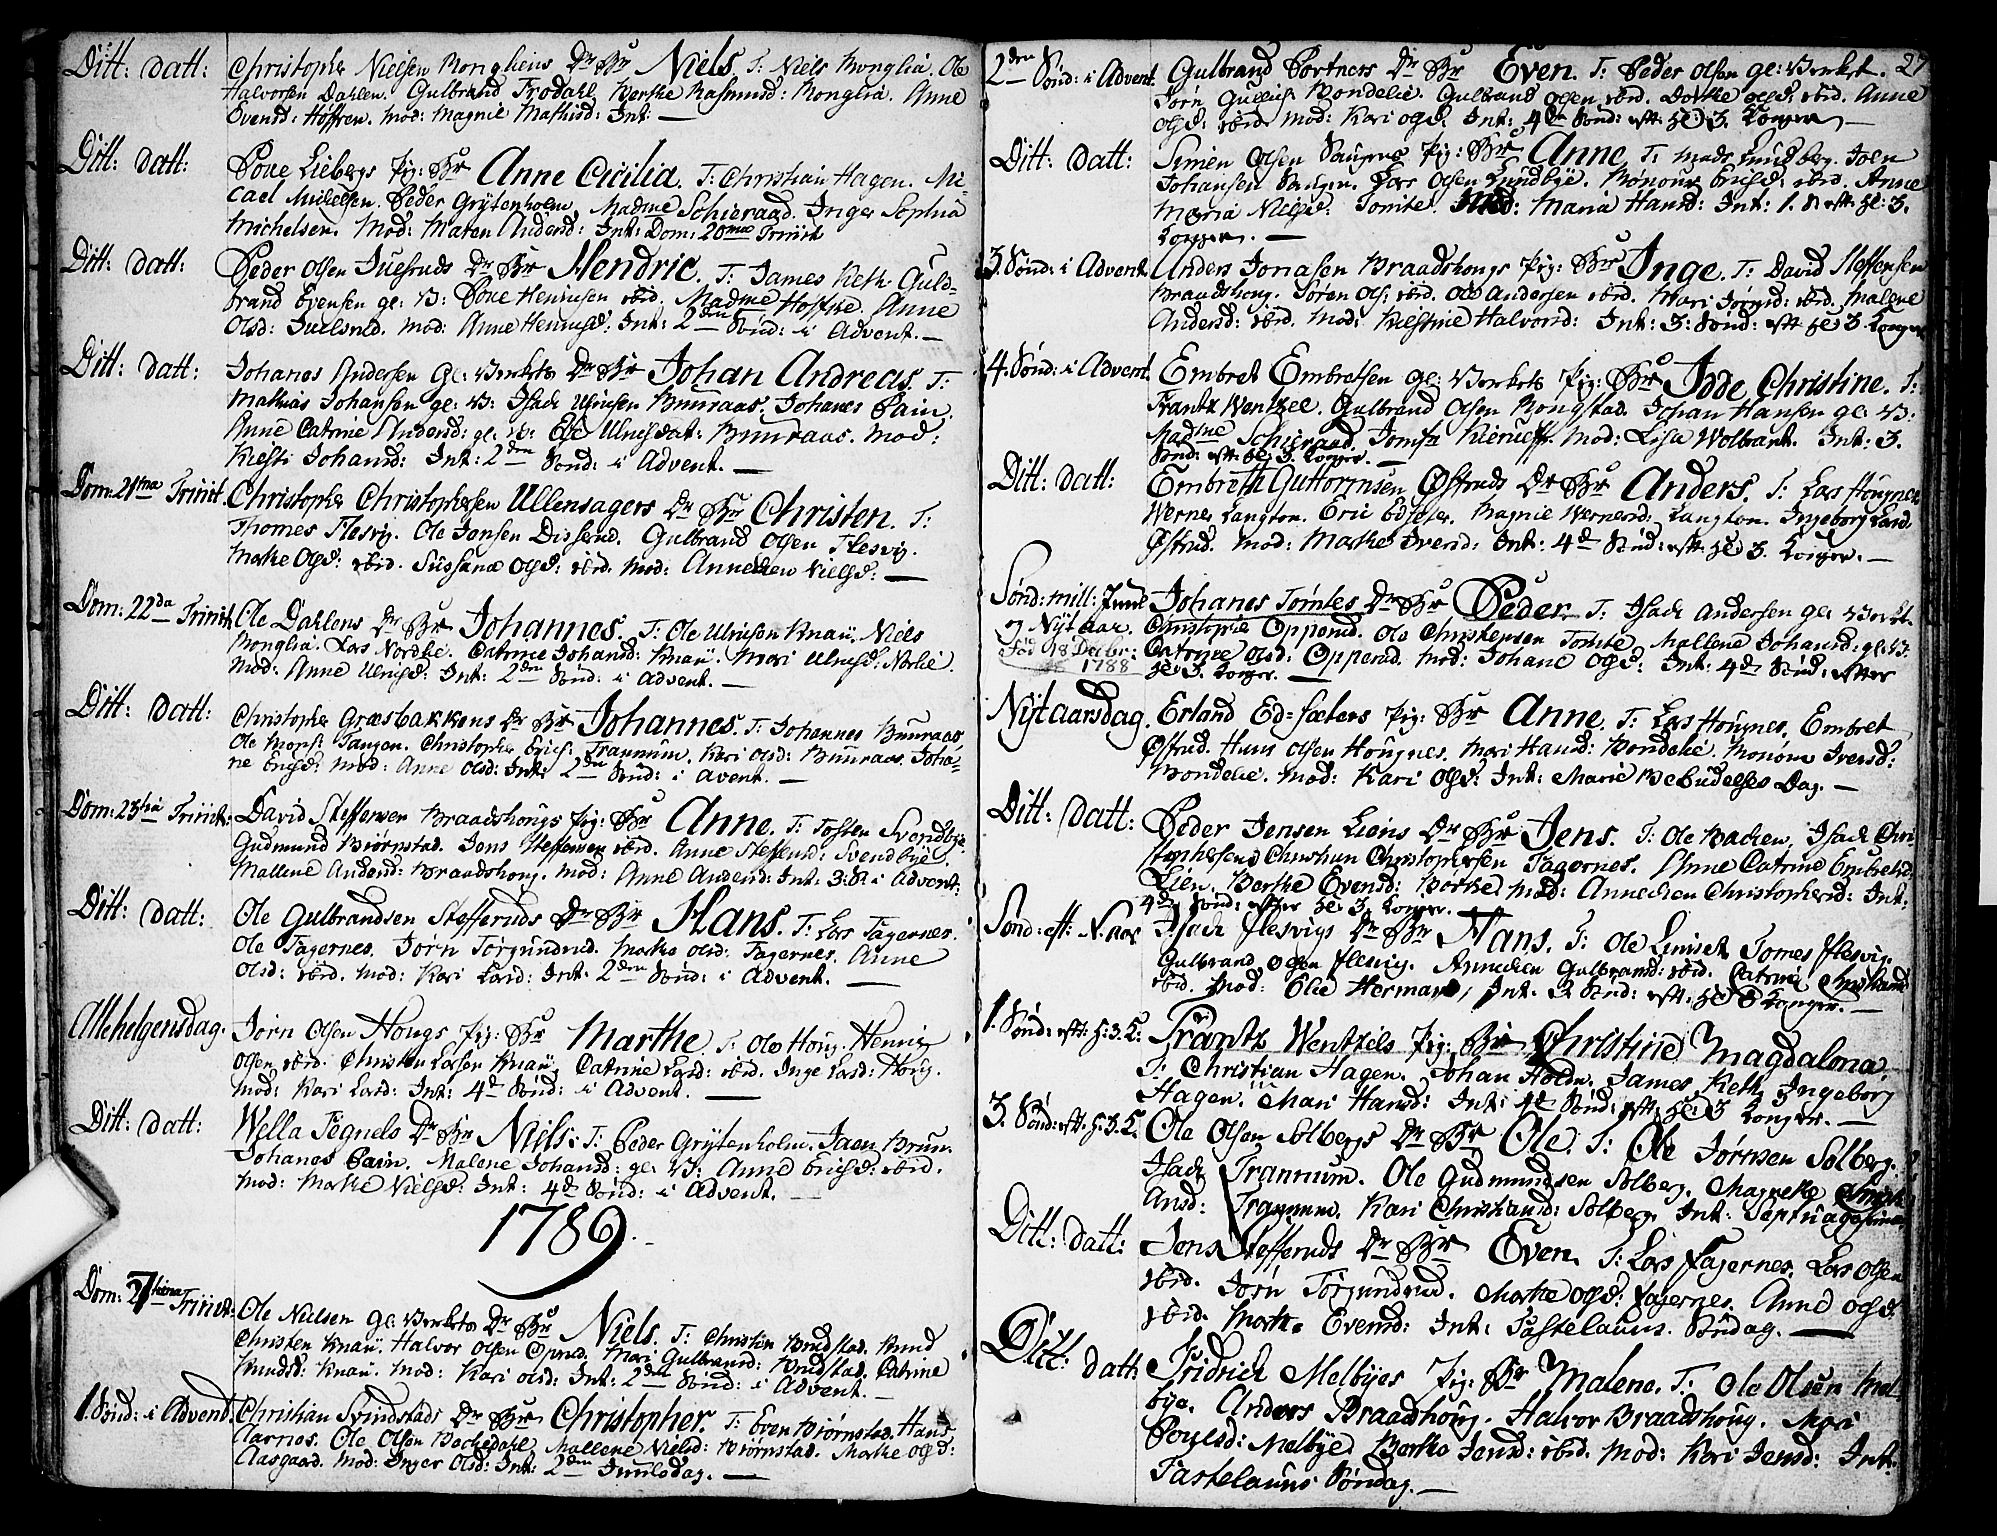 Ditt: datt: Christopher Nielsen Rongliens Dr: Br: Niels T: Niels Ronglia. Ole
Halvorsen Dahlen. Gulbrand Frodahl. Berthe Rasmusd: Ronglia. Anne
Evensd: Høffren. Mod: Magnie Mathisd: Int: —
Ditt: datt: Povel Liebergs Pig: Br: Anne Cicilia. T: Christian Hagen. Mi-
cael Michelsen. Peder Grytenholm. Madme Schieraad. Inger Sophia
Michelsen. Mod: Maren Andersd: Int: Dom: 20ma Trinit
Ditt: datt: Peder Olsen Juelsruds Dr: Br: Hendric. T: James Keth. Guld-
brand Evensen gl: V: Povel Henricsen ibid. Madme Anne
Olsd: Juelsrud. Mod: Anne Henricsd: Int: 2den Sønd: i Advent. —
Ditt: datt: Johanes Andersen gl: Verkets Dr: Br: Johan Andreas. T:
Mathias Johansen gl: V: Isach Ulricsen Buuraas. Johanes Pain.
Anne Catrine Andersd: gl: V: Else Ulricsdat: Buuraas. Mod:
Kiersti Johansd: Int: 2den Sønd: i Advent. —
Dom: 21ma Trinit. Christopher Christophersen Ullensagers Dr: Br: Christen. T:
Thomes Flesvig. Ole Jonsen Disserud. Gulbrand Olsen Flesvig.
Marthe Olsd: ibid. Sussanæ Olsd: ibid. Mod: Annechen Nielsd: —
Dom: 22da Trinit. Ole Dahlens Dr: Br: Johannes. T: Ole Ulricson Knaü. Niels
Ronglia. Lars Nordlie. Catrine Johansd: Knaü. Mari Ulricsd: Norlie.
Mod: Anne Ulricsd: Int: 2den Sønd: i Advent. —
Ditt: datt: Christopher Græsbakkens Dr: Br: Johannes. T: Johannes Buuraas
Ole Mons: Tangen. Christopher Erics: Trannum. Kari Olsd: Buuraas. Joha-
ne Ericsd: Mod: Anne Olsd: Int: 2den Sønd: i Avent. —
Dom: 23tia Trinit: David Steffensen Braadshougs Pig: Br: Anne. T: Tosten Svendbye.
Gudmund Biørnstad. Jens Steffensen ibid. Anne Steffensd: Svendbye.
Mallene Andersd: Braadshoug. Mod: Anne Andersd: Int: 3: S: i Advent:
Ditt: datt: Ole Gulbrandsen Stefferuds Dr: Br: Hans. T: Lars Fagernes.
Ole Fagernes. Jørn Torgundrud. Marthe Olsd: Fagernes. Anne
Olsd: ibid. Mod: Kari Larsd: Int: 2den Sønd: i Advent. —
Allehelgensdag. Jørn Olsen Hougs Pig: Br: Marthe. T: Ole Houg. Hennig
Olsen ibid. Christen Larsen Knaü. Catrine Larsd: ibid. Inge Larsd: Houg.
Mod: Kari Larsd: Int: 4de Sønd: i Advent. —
Ditt: datt: Wella Tegnels Dr: Br: Niels: T: Peder Grytenholm. Jaen Bruun.
Johanes Pain. Malene Johansd: gl: V: Anne Ericsd: ibid.
Mod: Marthe Nielsd: Int: 4de Sønd: i Advent. —
1789.
Dom: Trinit: Ole Nielsen gl: Verkets Dr: Br: Niels. T: Christen Brudstad. Knud
Christen Knaü. Halvor Olsen Oprud. Mari Gulbransd: Brudstad. Catrine
Knudsd: Knaü. Mod: Kari Olsd: Int: 2den Sønd: i Advent. —
1. Sønd: i Advent. Christian Svindstads Dr: Br: Christopher. T: Even Biørnstad. Hans
Aarnes. Ole Olsen Backedahl. Mallene Nielsd: Biørnstad. Marthe Olsd:
Aasgaard. Mod: Inger Olsd: Int: 2den Juuledag. —
27
2den Sønd: i Advent. Gulbrand Portners Dr: Br: Even. T: Peder Olsen gl: Verket.
Jørn Gullics: Bondelie. Gulbrand Olsen ibid. Dorthe Olsd: ibid. Anne
Olsd: ibid. Mod: Kari Olsd: Int: 4de Sønd: eft: Hel: 3. Konger. —
Ditt: datt: Simen Olsen Saugens Pig: Br: Anne. T: Mads Lundberg. Joen
Johansen Saugen. Lars Olsen Lundbye. Rønoue Ericsd: ibid. Anne
Maria Nielsd: Tomte. Mod: Maria Hansd: Int: 1. S: eft: Hel: 3.
Konger. —
3. Sønd: i Advent. Anders Jonasen Braadshougs Pig: Br: Inge. T: David Steffensen
Braadshoug. Søren Ols: ibid. Ole Andersen ibid. Mari Jørnsd: ibid. Malene
Andersd: ibid. Mod: Kierstine Halvorsd: Int: 3: Sønd: eft Hel: 3. Konger
4. Sønd: i Advent. Embret Embretsen gl: Verkets Pig: Br: Idde Christine. T:
Frantz Wentzel. Gulbrand Olsen Rongstad. Johan Hansen gl: V:
Madme Schieraad. Jomfr Kierulff. Mod: Lisa Wolbrant. Int: 3.
Sønd: eft: Hel: 3. Konger. —
Ditt: datt: Embreth Guttormsen Østruds Dr: Br: Anders. T: Lars Hougnes.
Werner Langton. Eric Edsæter. Magnie Wernersd: Langton. Ingeborg Larsd:
Østrud. Mod: Marthe Iversd: Int: 4de Sønd: eft: Hel: 3. Konger. —
Sønd: mill: Juul Johanes Tomtes Dr: Br: Peder. T: Isach Andersen gl: Verket.
og Nyt aar. Christopher Opperud. Ole Christensen Tomte. Mallene Johansd: gl: V:
Fød 18 Decbr: 1788 Catrine Olsd: Opperud. Mod: Johane Olsd: Int: 4de Sønd: efter
Hel: 3. Konger. —
Nyt aarsdag. Erland Ed-sæters Pig: Br: Anne. T: Lars Hougnes. Embret
Østrud. Hans Olsen Hougnes. Mari Hansd: Bondelie. Rønoue Iversd:
Bondelie. Mod: Kari Olsd: Int: Marie Bebudelses Dag. —
Ditt: datt: Peder Jensen Liens Dr: Br: Jens. T: Ole Backen. Isach Chri-
stophersen. Christian Christophersen Fagernes. Anne Catrine Embretsd:
Lien. Berthe Evensd: Berthe Mod: Annechen Christophersd: Int:
4de Sønd: efter Hel: 3. Konger. —
Sønd: eft: N. aar Isach Flesvigs Dr: Br: Hans. T: Ole Linset. Tomes Flesvig.
Gulbrand Olsen Flesvig. Annechen Gulbransd: ibid. Catrine Christiansd:
ibid. Mod: Elie Hermansd: Int: 3 Sønd: eft: Hel: 3 Konger. —
1. Sønd: eft: H: 3. K: Frantz Wentzels Pig: Br: Christine Magdalena.
T: Christian Hagen. Johan Holdn. James Keth. Ingeborg
Hagen. Mari Hansd: Int: 4de Sønd: eft: Hel: 3 Konger. —
3. Sønd: eft. H. 3. K. Ole Olsen Solbergs Dr: Br: Ole. T: Ole Jørnsen Solberg.
Isach Trannum. Ole Gudmundsen Solberg. Magnethe
Ansd: Trannum. Kari Christiansd: Solberg. Int: Septuagesima
Ditt: datt: Jens Stefferuds Dr: Br: Even. T: Lars Fagernes. Lars Olsen
ibid. Jørn Torgundrud. Marthe Olsd: Fagernes. Anne Olsd:
ibid. Mod: Marthe Evensd: Int: Fastelauns Søndag. —
Ditt: datt: Fridrich Melbyes Pig: Br: Malene. T: Ole Olsen Mel-
bye. Anders Braadshoug. Halvor Braadshoug. Mari
Poulsd: Melbye. Berthe Jensd: ibid. Mod: Kari Jensd: Int:
Fastelauns Søndag. —